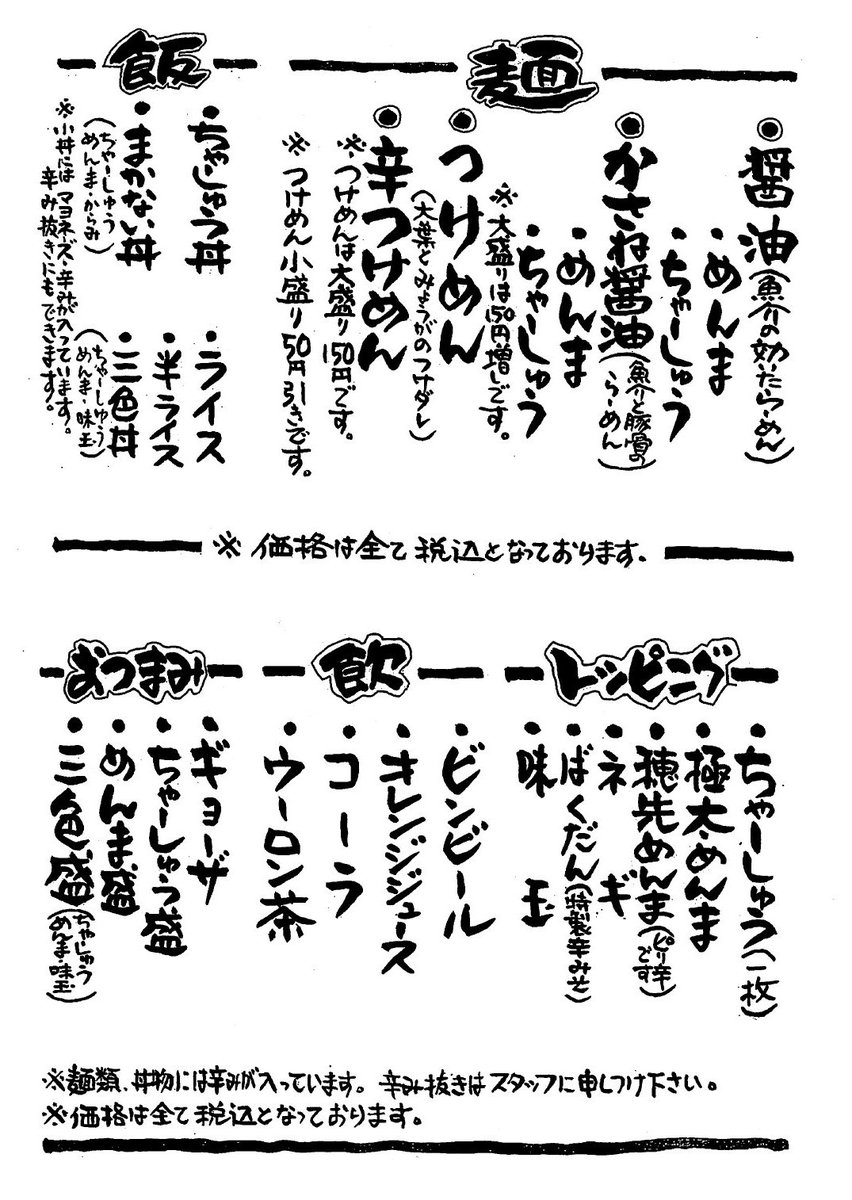 麺
醤油(魚介の効いたらーめん)
・めんま
・ちゃーしゅう
かさね醤油(魚介と豚骨のらーめん)
・めんま
・ちゃーしゅう
※大盛りは150円増しです。
つけめん
(大葉とみょうがのつけダレ)
辛つけめん
※つけめんは大盛り150円です。
※つけめん小盛り50円引きです。
飯
・ちゃーしゅう丼
・ライス
・半ライス
・まかない丼
(ちゃーしゅう
めんま・からみ)
・三色丼
(ちゃーしゅう
めんま・味玉)
※小丼にはマヨネーズ・辛みが入っています。
辛み抜きにもできます。
※価格は全て税込となっております。
トッピング
・ちゃーしゅう(一枚)
・極太めんま
・穂先めんま(ピリ辛です)
・ネギ
・ばくだん(特製辛みそ)
・味玉
飲
・ビンビール
・オレンジジュース
・コーラ
・ウーロン茶
おつまみ
・ギョーザ
・ちゃーしゅう盛
・めんま盛
・三色盛(ちゃーしゅう
めんま・味玉)
※麺類、丼物には辛みが入っています。辛み抜きはスタッフに申しつけ下さい。
※価格は全て税込となっております。